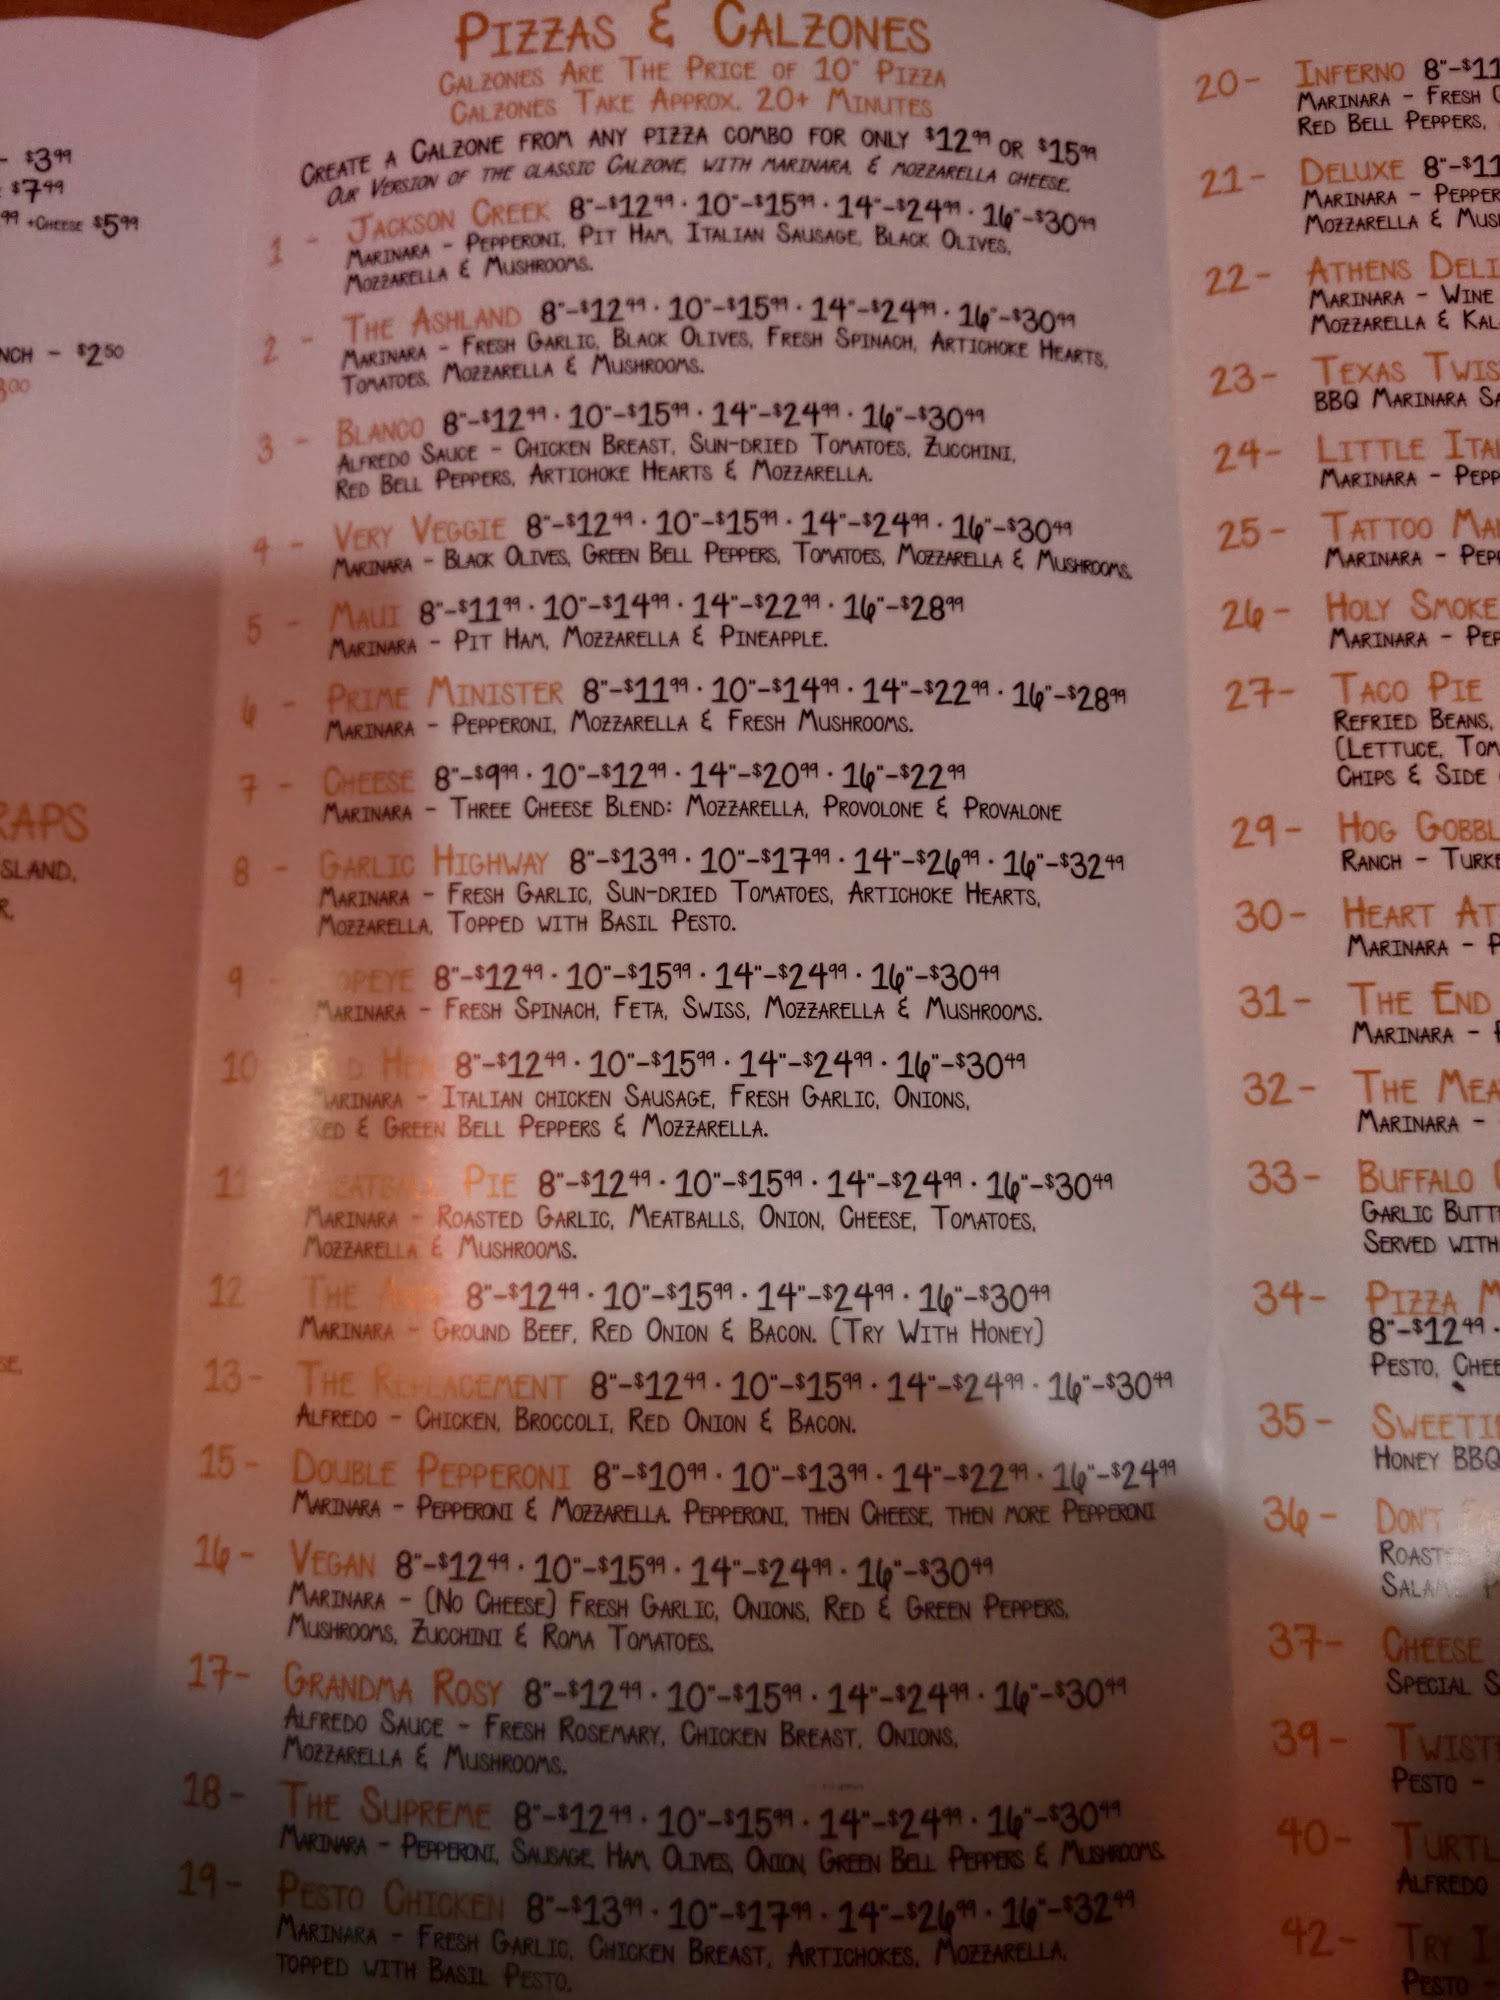 - $3.99
$7.49
99 +Cheese $5.99
NCH - $2.50
RAPS
SLAND,
Pizzas & Calzones
Calzones Are The Price of 10" Pizza
Calzones Take Approx. 20+ Minutes
Create a Calzone from any pizza combo for only $12.99 or $15.99
Our Version of the classic Calzone, with marinara, & mozzarella cheese.
1 - Jackson Creek 8"-$12.49 · 10"-$15.99 · 14"-$24.99 · 16"-$30.49
Marinara - Pepperoni, Pit Ham, Italian Sausage, Black Olives,
Mozzarella & Mushrooms.
2 - The Ashland 8"-$12.49 · 10"-$15.99 · 14"-$24.99 · 16"-$30.49
Marinara - Fresh Garlic, Black Olives, Fresh Spinach, Artichoke Hearts,
Tomatoes, Mozzarella & Mushrooms.
3 - Blanco 8"-$12.49 · 10"-$15.99 · 14"-$24.99 · 16"-$30.49
Alfredo Sauce - Chicken Breast, Sun-dried Tomatoes, Zucchini,
Red Bell Peppers, Artichoke Hearts & Mozzarella.
4 - Very Veggie 8"-$12.49 · 10"-$15.99 · 14"-$24.99 · 16"-$30.49
Marinara - Black Olives, Green Bell Peppers, Tomatoes, Mozzarella & Mushrooms.
5 - Maui 8"-$11.99 · 10"-$14.99 · 14"-$22.99 · 16"-$28.99
Marinara - Pit Ham, Mozzarella & Pineapple.
6 - Prime Minister 8"-$11.99 · 10"-$14.99 · 14"-$22.99 · 16"-$28.99
Marinara - Pepperoni, Mozzarella & Fresh Mushrooms.
7 - Cheese 8"-$9.99 · 10"-$12.99 · 14"-$20.99 · 16"-$22.99
Marinara - Three Cheese Blend: Mozzarella, Provolone & Provalone
8 - Garlic Highway 8"-$13.99 · 10"-$17.99 · 14"-$26.99 · 16"-$32.49
Marinara - Fresh Garlic, Sun-dried Tomatoes, Artichoke Hearts,
Mozzarella, Topped with Basil Pesto.
9 - Popeye 8"-$12.49 · 10"-$15.99 · 14"-$24.99 · 16"-$30.49
Marinara - Fresh Spinach, Feta, Swiss, Mozzarella & Mushrooms.
10 Red Hen 8"-$12.49 · 10"-$15.99 · 14"-$24.99 · 16"-$30.49
Marinara - Italian chicken Sausage, Fresh Garlic, Onions,
Red & Green Bell Peppers & Mozzarella.
11 Meatball Pie 8"-$12.49 · 10"-$15.99 · 14"-$24.99 · 16"-$30.49
Marinara - Roasted Garlic, Meatballs, Onion, Cheese, Tomatoes,
Mozzarella & Mushrooms.
12 The 8"-$12.49 · 10"-$15.99 · 14"-$24.99 · 16"-$30.49
Marinara - Ground Beef, Red Onion & Bacon. (Try With Honey)
13- The Replacement 8"-$12.49 · 10"-$15.99 · 14"-$24.99 · 16"-$30.49
Alfredo - Chicken, Broccoli, Red Onion & Bacon.
15- Double Pepperoni 8"-$10.99 · 10"-$13.99 · 14"-$22.99 · 16"-$24.99
Marinara - Pepperoni & Mozzarella. Pepperoni, then Cheese, then more Pepperoni
16- Vegan 8"-$12.49 · 10"-$15.99 · 14"-$24.99 · 16"-$30.49
Marinara - (No Cheese) Fresh Garlic, Onions, Red & Green Peppers,
Mushrooms, Zucchini & Roma Tomatoes.
17- Grandma Rosy 8"-$12.49 · 10"-$15.99 · 14"-$24.99 · 16"-$30.49
Alfredo Sauce - Fresh Rosemary, Chicken Breast, Onions,
Mozzarella & Mushrooms.
18- The Supreme 8"-$12.49 · 10"-$15.99 · 14"-$24.99 · 16"-$30.49
Marinara - Pepperoni, Sausage, Ham, Olives, Onion, Green Bell Peppers & Mushrooms.
19- Pesto Chicken 8"-$13.99 · 10"-$17.99 · 14"-$26.99 · 16"-$32.49
Marinara - Fresh Garlic, Chicken Breast, Artichokes, Mozzarella,
topped with Basil Pesto.
20- Inferno 8"-$11
Marinara - Fresh
Red Bell Peppers,
21- Deluxe 8"-$11
Marinara - Pepper
Mozzarella & Mus
22- Athens Deli
Marinara - Wine
Mozzarella & Kal
23- Texas Twis
BBQ Marinara Sa
24- Little Ital
Marinara - Pepp
25- Tattoo Ma
Marinara - Pep
26- Holy Smoke
Marinara - Pep
27- Taco Pie
Refried Beans,
(Lettuce, Tom
Chips & Side
29- Hog Gobbl
Ranch - Turke
30- Heart At
Marinara - P
31- The End
Marinara -
32- The Mea
Marinara -
33- Buffalo
Garlic Butt
Served with
34- Pizza M
8"-$12.49 ·
Pesto, Chee
35- Sweetie
Honey BBQ
36- Don't
Roast
Salam
37- Cheese
Special S
39- Twist
Pesto -
40- Turtl
Alfredo
42- Try I
Pesto -